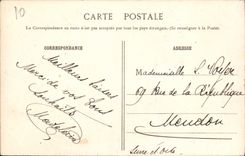 10
CARTE POSTALE
La Correspondance au recto n'est pas acceptée par tous les pays étrangers. (Se renseigner à la Poste).
CORRESPONDANCE
ADRESSE
Meilleurs baisers
Merci de vos bons
Mademoiselle S.
69 Rue de la République
Meudon
Seine et Oise